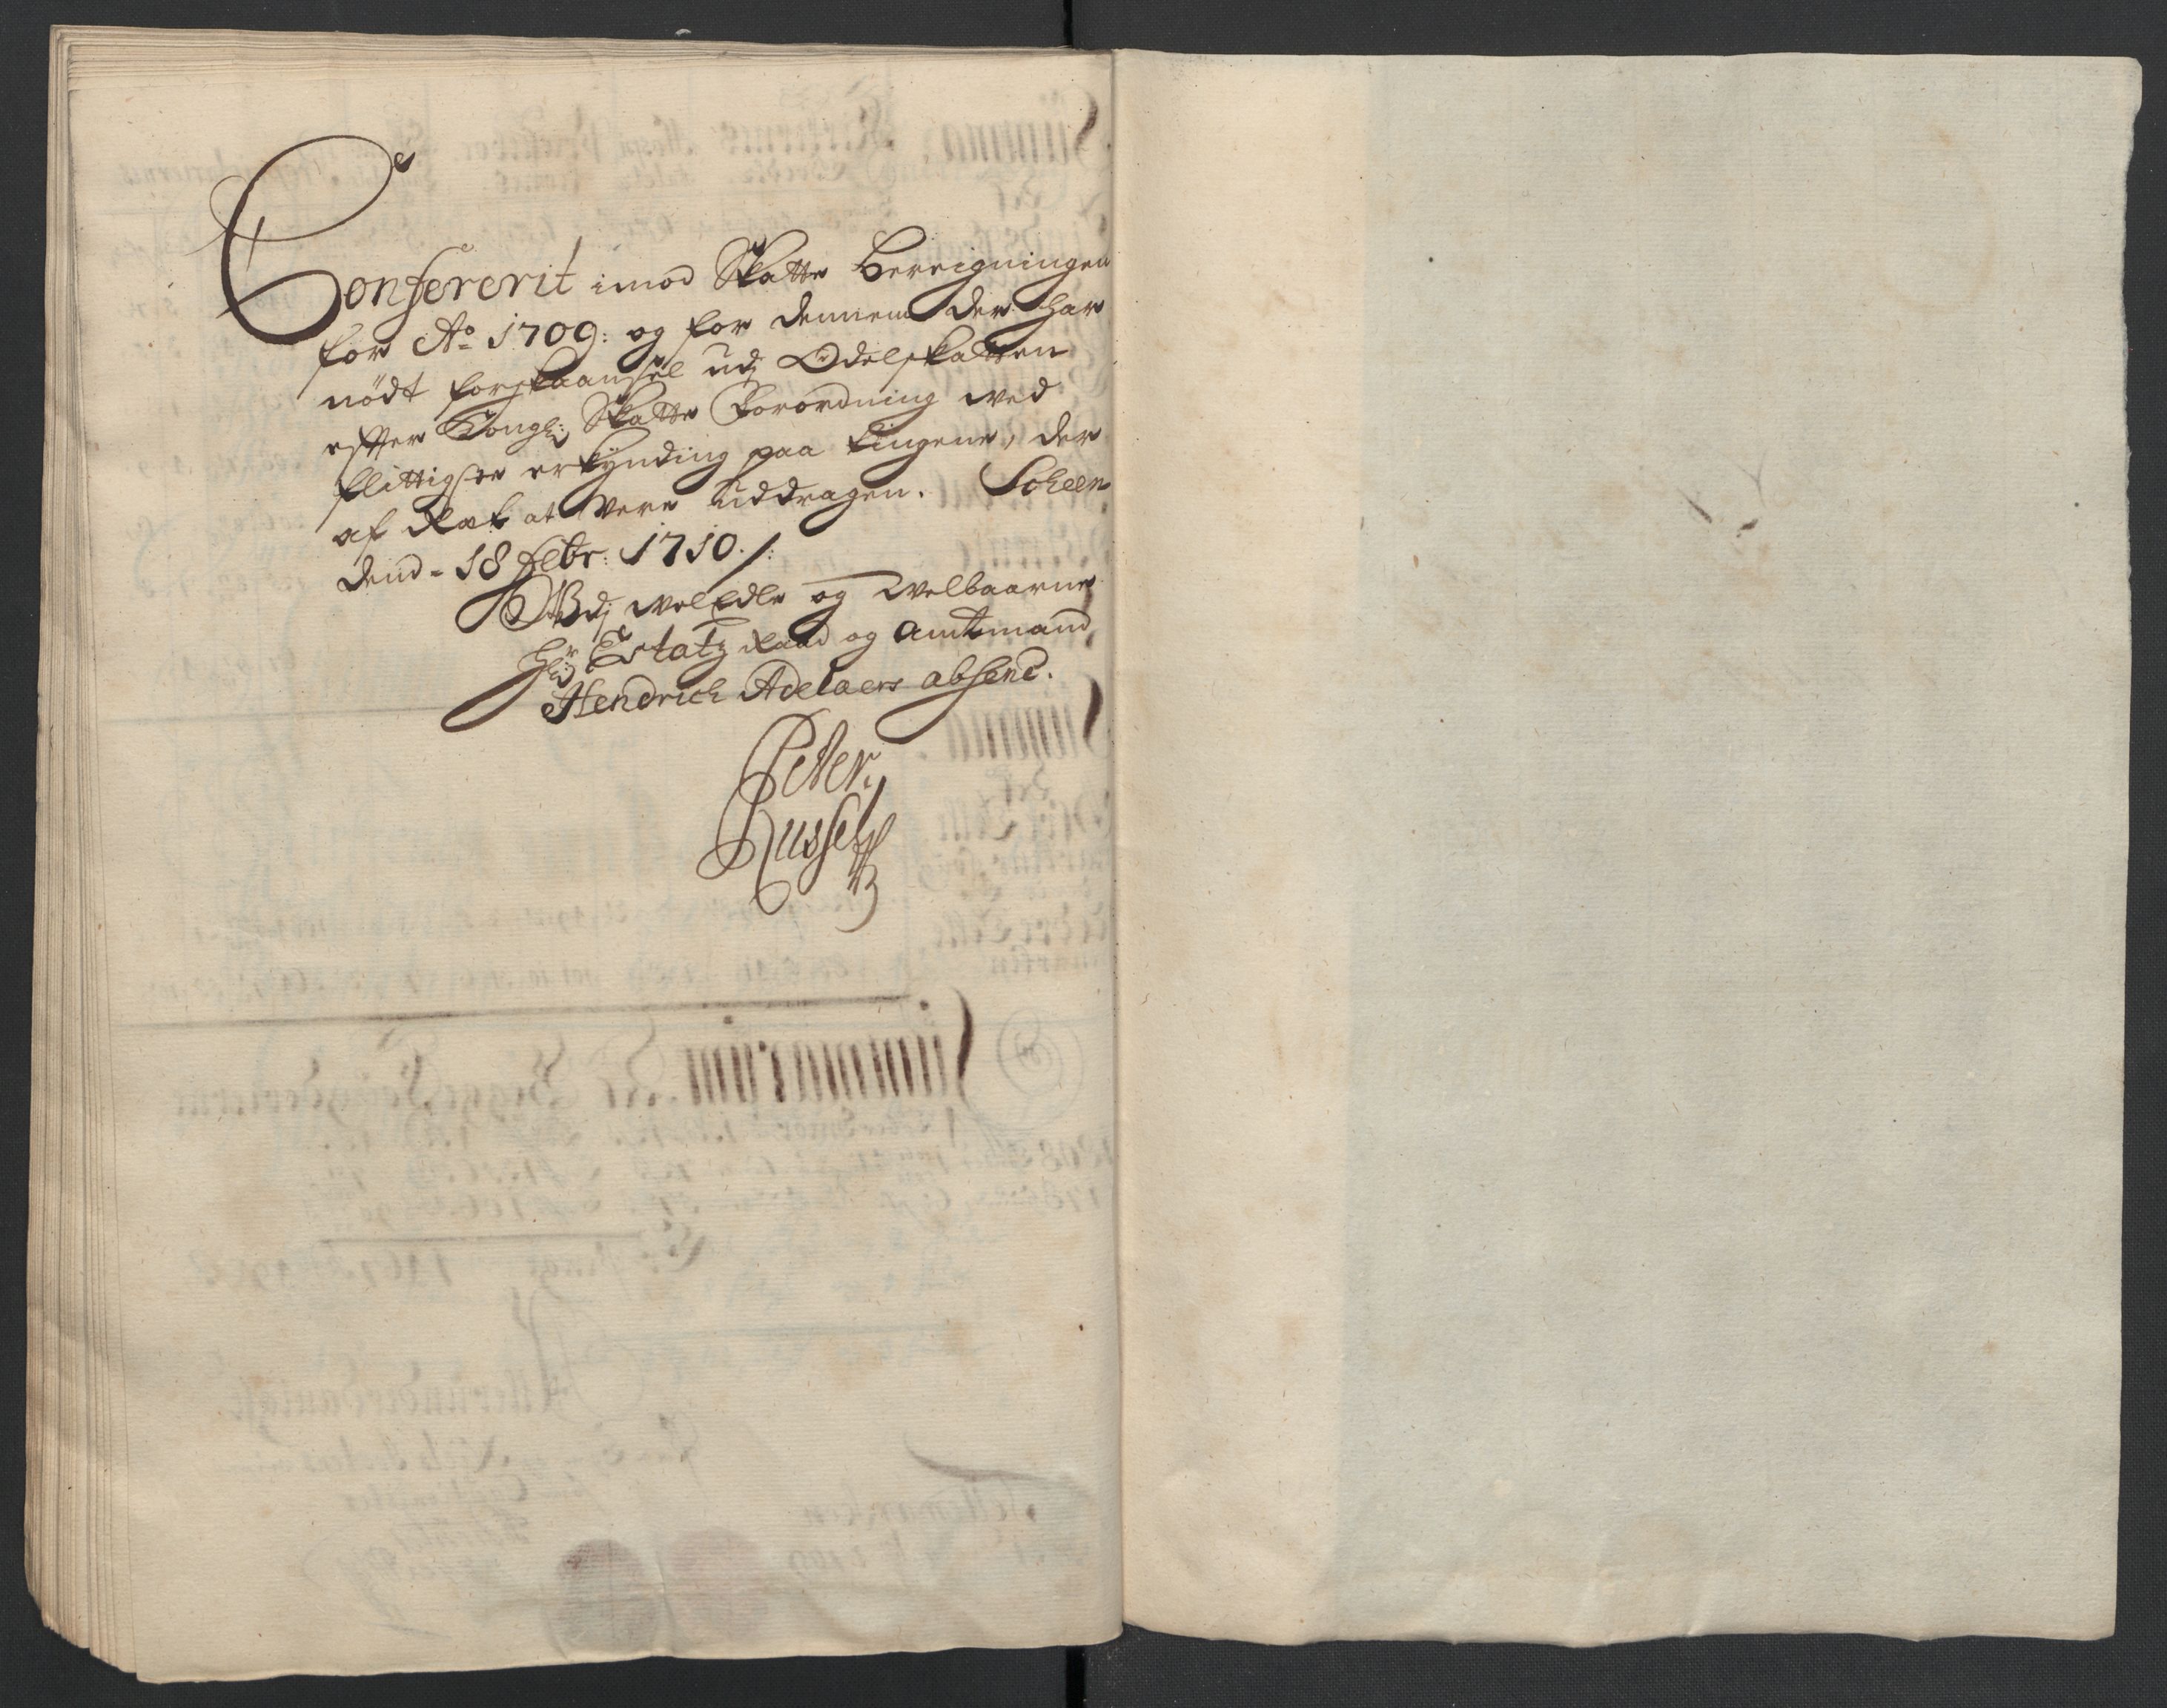 Confererit imod Skatte Bereigningen
for Ao 1709: og for dennem der har
nödt forskaansel udj Odelskatten
effter Kongl: Skatte Forordning ved
flittigste erkynding paa tingene, der
af Ræt at Vere uddragen. Scheen
dend - 18 Febr: 1710 ./:
Udj Wel Edle og Welbaarne
Hr Etatz Raad og Amtmand
Hendrich Adelaers absenc.
Peter
Russel